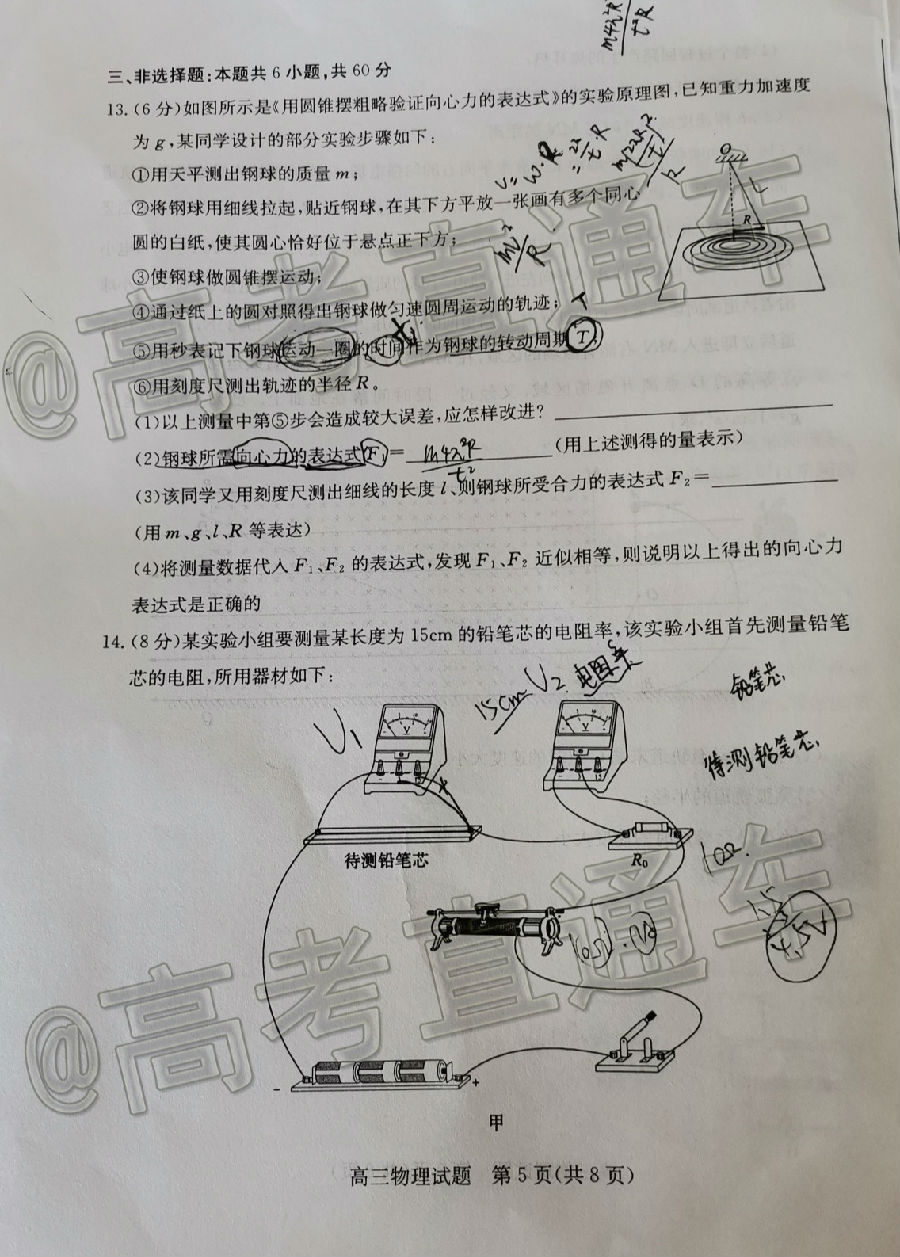 m4π²R
t²R
三、非选择题:本题共6小题,共60分
13.(6分)如图所示是《用圆锥摆粗略验证向心力的表达式》的实验原理图,已知重力加速度
为g,某同学设计的部分实验步骤如下:
①用天平测出钢球的质量m;
②将钢球用细线拉起,贴近钢球,在其下方平放一张画有多个同心
圆的白纸,使其圆心恰好位于悬点正下方;
③使钢球做圆锥摆运动;
④通过纸上的圆对照得出钢球做匀速圆周运动的轨迹;
⑤用秒表记下钢球运动一圈的时间作为钢球的转动周期T;
⑥用刻度尺测出轨迹的半径R。
v=ω·R
=2π/t·R
mv²
R
O
L
R
(1)以上测量中第⑤步会造成较大误差,应怎样改进?
(2)钢球所需向心力的表达式F₁= m4π²R/t² (用上述测得的量表示)
(3)该同学又用刻度尺测出细线的长度l,则钢球所受合力的表达式F₂=
(用m、g、l、R等表达)
(4)将测量数据代入F₁、F₂的表达式,发现F₁、F₂近似相等,则说明以上得出的向心力
表达式是正确的
14.(8分)某实验小组要测量某长度为15cm的铅笔芯的电阻率,该实验小组首先测量铅笔
芯的电阻,所用器材如下:
U₁
15cm
U₂
电阻率
铅笔芯
待测铅笔芯
V
V
待测铅笔芯
R₀
10Ω
1.5
4.5V
-
+
甲
高三物理试题 第5页(共8页)
@高考直通车
@高考直通车